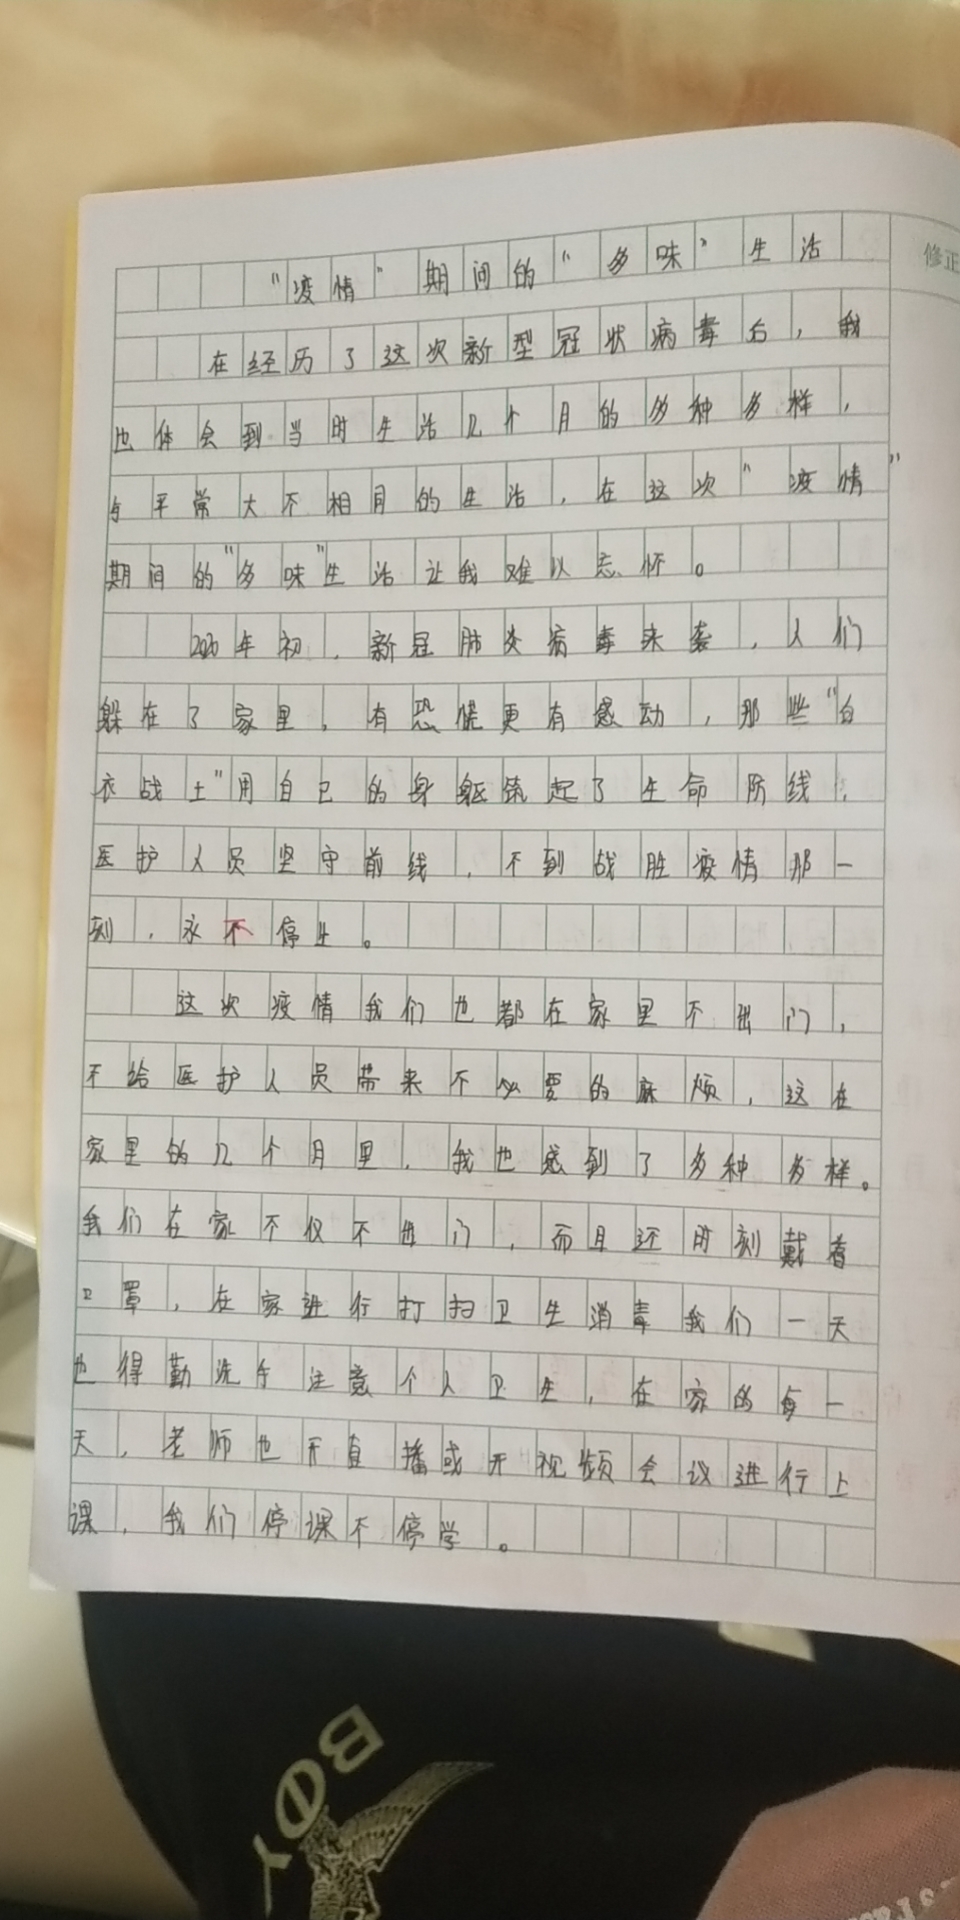 “疫情”期间的“多味”生活
修正
在经历了这次新型冠状病毒后，我
也体会到当时生活几个月的多种多样，
与平常大不相同的生活，在这次“疫情”
期间的“多味”生活让我难以忘怀。
2020年初，新冠肺炎病毒来袭，人们
躲在了家里，有恐慌更有感动，那些“白
衣战士”用自己的身躯筑起了生命防线，
医护人员坚守前线，不到战胜疫情那一
刻，永不停生。
这次疫情我们也都在家里不出门，
不给医护人员带来不必要的麻烦，这在
家里的几个月里，我也感到了多种多样。
我们在家不仅不出门，而且还时刻戴着
口罩，在家进行打扫卫生消毒我们一天
也得勤洗手注意个人卫生，在家的每一
天，老师也开直播或开视频会议进行上
课，我们停课不停学。
ΒΦΥ